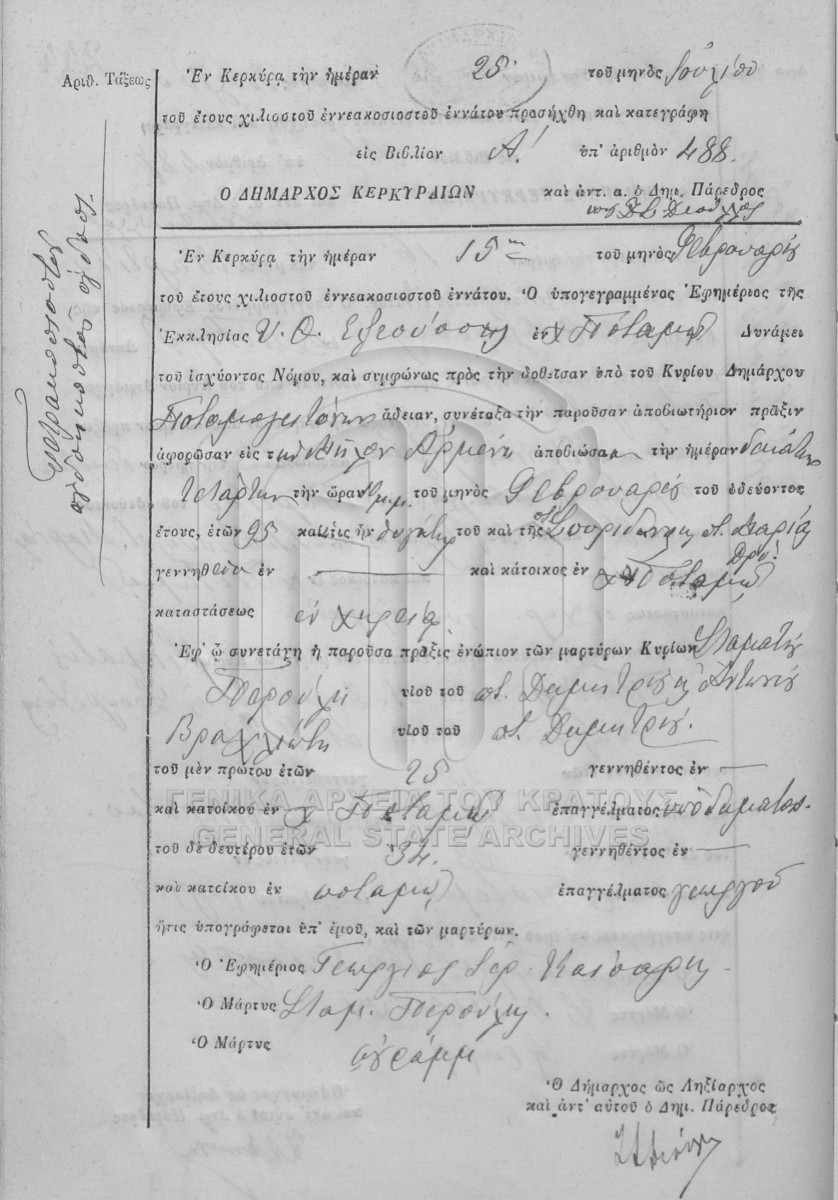 Ἀριθ. Τάξεως
τετρακοσιοστὸν
ὀγδοηκοστὸν ὄγδοον.
Ἐν Κερκύρᾳ τὴν ἡμέραν 25 τοῦ μηνὸς Ἰουλίου
τοῦ ἔτους χιλιοστοῦ ἐννεακοσιοστοῦ ἐννάτου προσήχθη καὶ κατεγράφη
εἰς Βιβλίον Α! ὑπ' ἀριθμὸν 488.
Ο ΔΗΜΑΡΧΟΣ ΚΕΡΚΥΡΑΙΩΝ καὶ ἀντ. α. ὁ Δημ. Πάρεδρος
Ἐν Κερκύρᾳ τὴν ἡμέραν 15 τοῦ μηνὸς Φεβρουαρίου
τοῦ ἔτους χιλιοστοῦ ἐννεακοσιοστοῦ ἐννάτου. Ὁ ὑπογεγραμμένος Ἐφημέριος τῆς
Ἐκκλησίας Υ. Θ. ἐν χ Ποταμῷ Δυνάμει
τοῦ ἰσχύοντος Νόμου, καὶ συμφώνως πρὸς τὴν δοθεῖσαν ὑπὸ τοῦ Κυρίου Δημάρχου
Ποταμογειτόνων ἄδειαν, συνέταξα τὴν παροῦσαν ἀποβιωτήριον πρᾶξιν
ἀφορῶσαν εἰς τ ἀποβιώσα τὴν ἡμέραν
Τετάρτην τὴν ὥραν μ.μ. τοῦ μηνὸς Φεβρουαρίου τοῦ ὁδεύοντος
ἔτους, ἐτῶν 95 καὶ ἥτις ἦν θυγάτηρ τοῦ καὶ τῆς ποτ Σπυρίδωνος κ π. Μαρίας
γεννηθεῖσα ἐν — καὶ κάτοικος ἐν χ Ποταμῷ
καταστάσεως ἐν χηρείᾳ
Ἐφ' ᾧ συνετάχη ἡ παροῦσα πρᾶξις ἐνώπιον τῶν μαρτύρων Κυρίων Σταματίου
Περούλη υἱοῦ τοῦ ποτ. Δημητρίου κ Ἀντωνίου
Βραχλιώτη υἱοῦ τοῦ ποτ. Δημητρίου.
τοῦ μὲν πρώτου ἐτῶν 25 γεννηθέντος ἐν —
καὶ κατοίκου ἐν χ Ποταμῷ ἐπαγγέλματος ὑποδηματοπ.
τοῦ δὲ δευτέρου ἐτῶν 34. γεννηθέντος ἐν —
καὶ κατοίκου ἐν ποταμῷ ἐπαγγέλματος γεωργοῦ
ἥτις ὑπογράφεται ὑπ' ἐμοῦ, καὶ τῶν μαρτύρων.
Ὁ Ἐφημέριος Γεώργιος Ἱερ. Κατσαρὸς
Ὁ Μάρτυς Σταμ. Περούλης.
Ὁ Μάρτυς ἀγράμμ
Ὁ Δήμαρχος ὡς Ληξίαρχος
καὶ ἀντ' αὐτοῦ ὁ Δημ. Πάρεδρος
ΓΕΝΙΚΑ ΑΡΧΕΙΑ ΤΟΥ ΚΡΑΤΟΥΣ
GENERAL STATE ARCHIVES